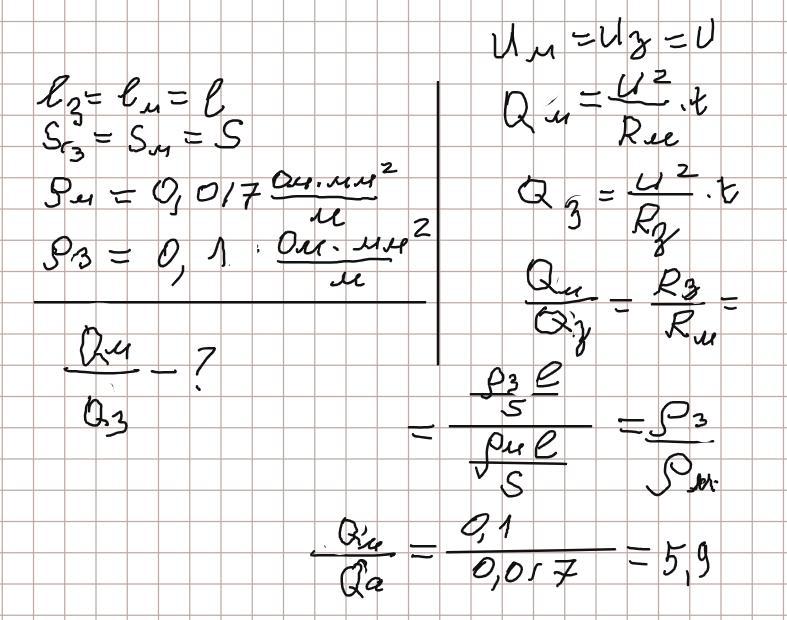 lз = lм = l
Sз = Sм = S
ρм = 0,017 Ом·мм²/м
ρз = 0,1 · Ом·мм²/м
Qм/Qз - ?
Uм = Uз = U
Qм = U²/Rм · t
Qз = U²/Rз · t
Qм/Qз = Rз/Rм =
= (ρз l/S)/(ρм l/S) = ρз/ρм
Qм/Qа = 0,1/0,017 = 5,9